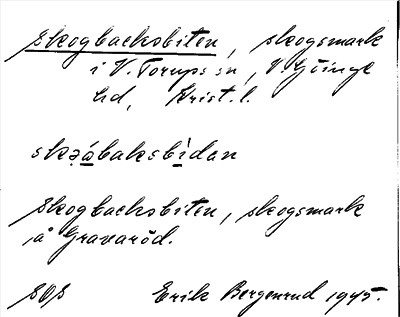 Skogbacksbiten, skogsmark
i V. Torups sn, V. Göinge
hd, Krist. l.
skə̣åbaksbìdan
Skogbacksbiten, skogsmark
å Gravaröd.
SOS Erik Bergenrud 1945.